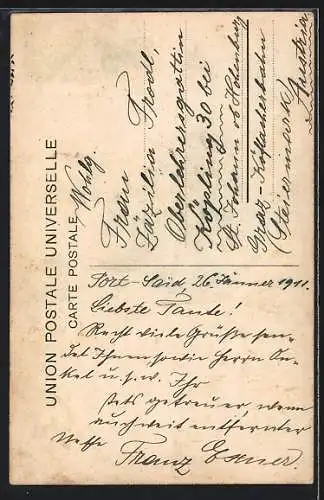 UNION POSTALE UNIVERSELLE
CARTE POSTALE
Wohlg.
Frau
Zäzilia Trodl,
Oberlehrersgattin
Köpling 30 bei
St. Johann ob Hohenburg
Graz-Köflacherbahn
(Steiermark)
Austria
Port-Saïd, 26. Jänner 1911.
Liebste Tante!
Recht viele Grüße sen-
det Ihnen sowie Herrn On-
kel u.s.w. Ihr
stets getreuer, wenn
auch weit entfernter
Neffe Franz Exner.